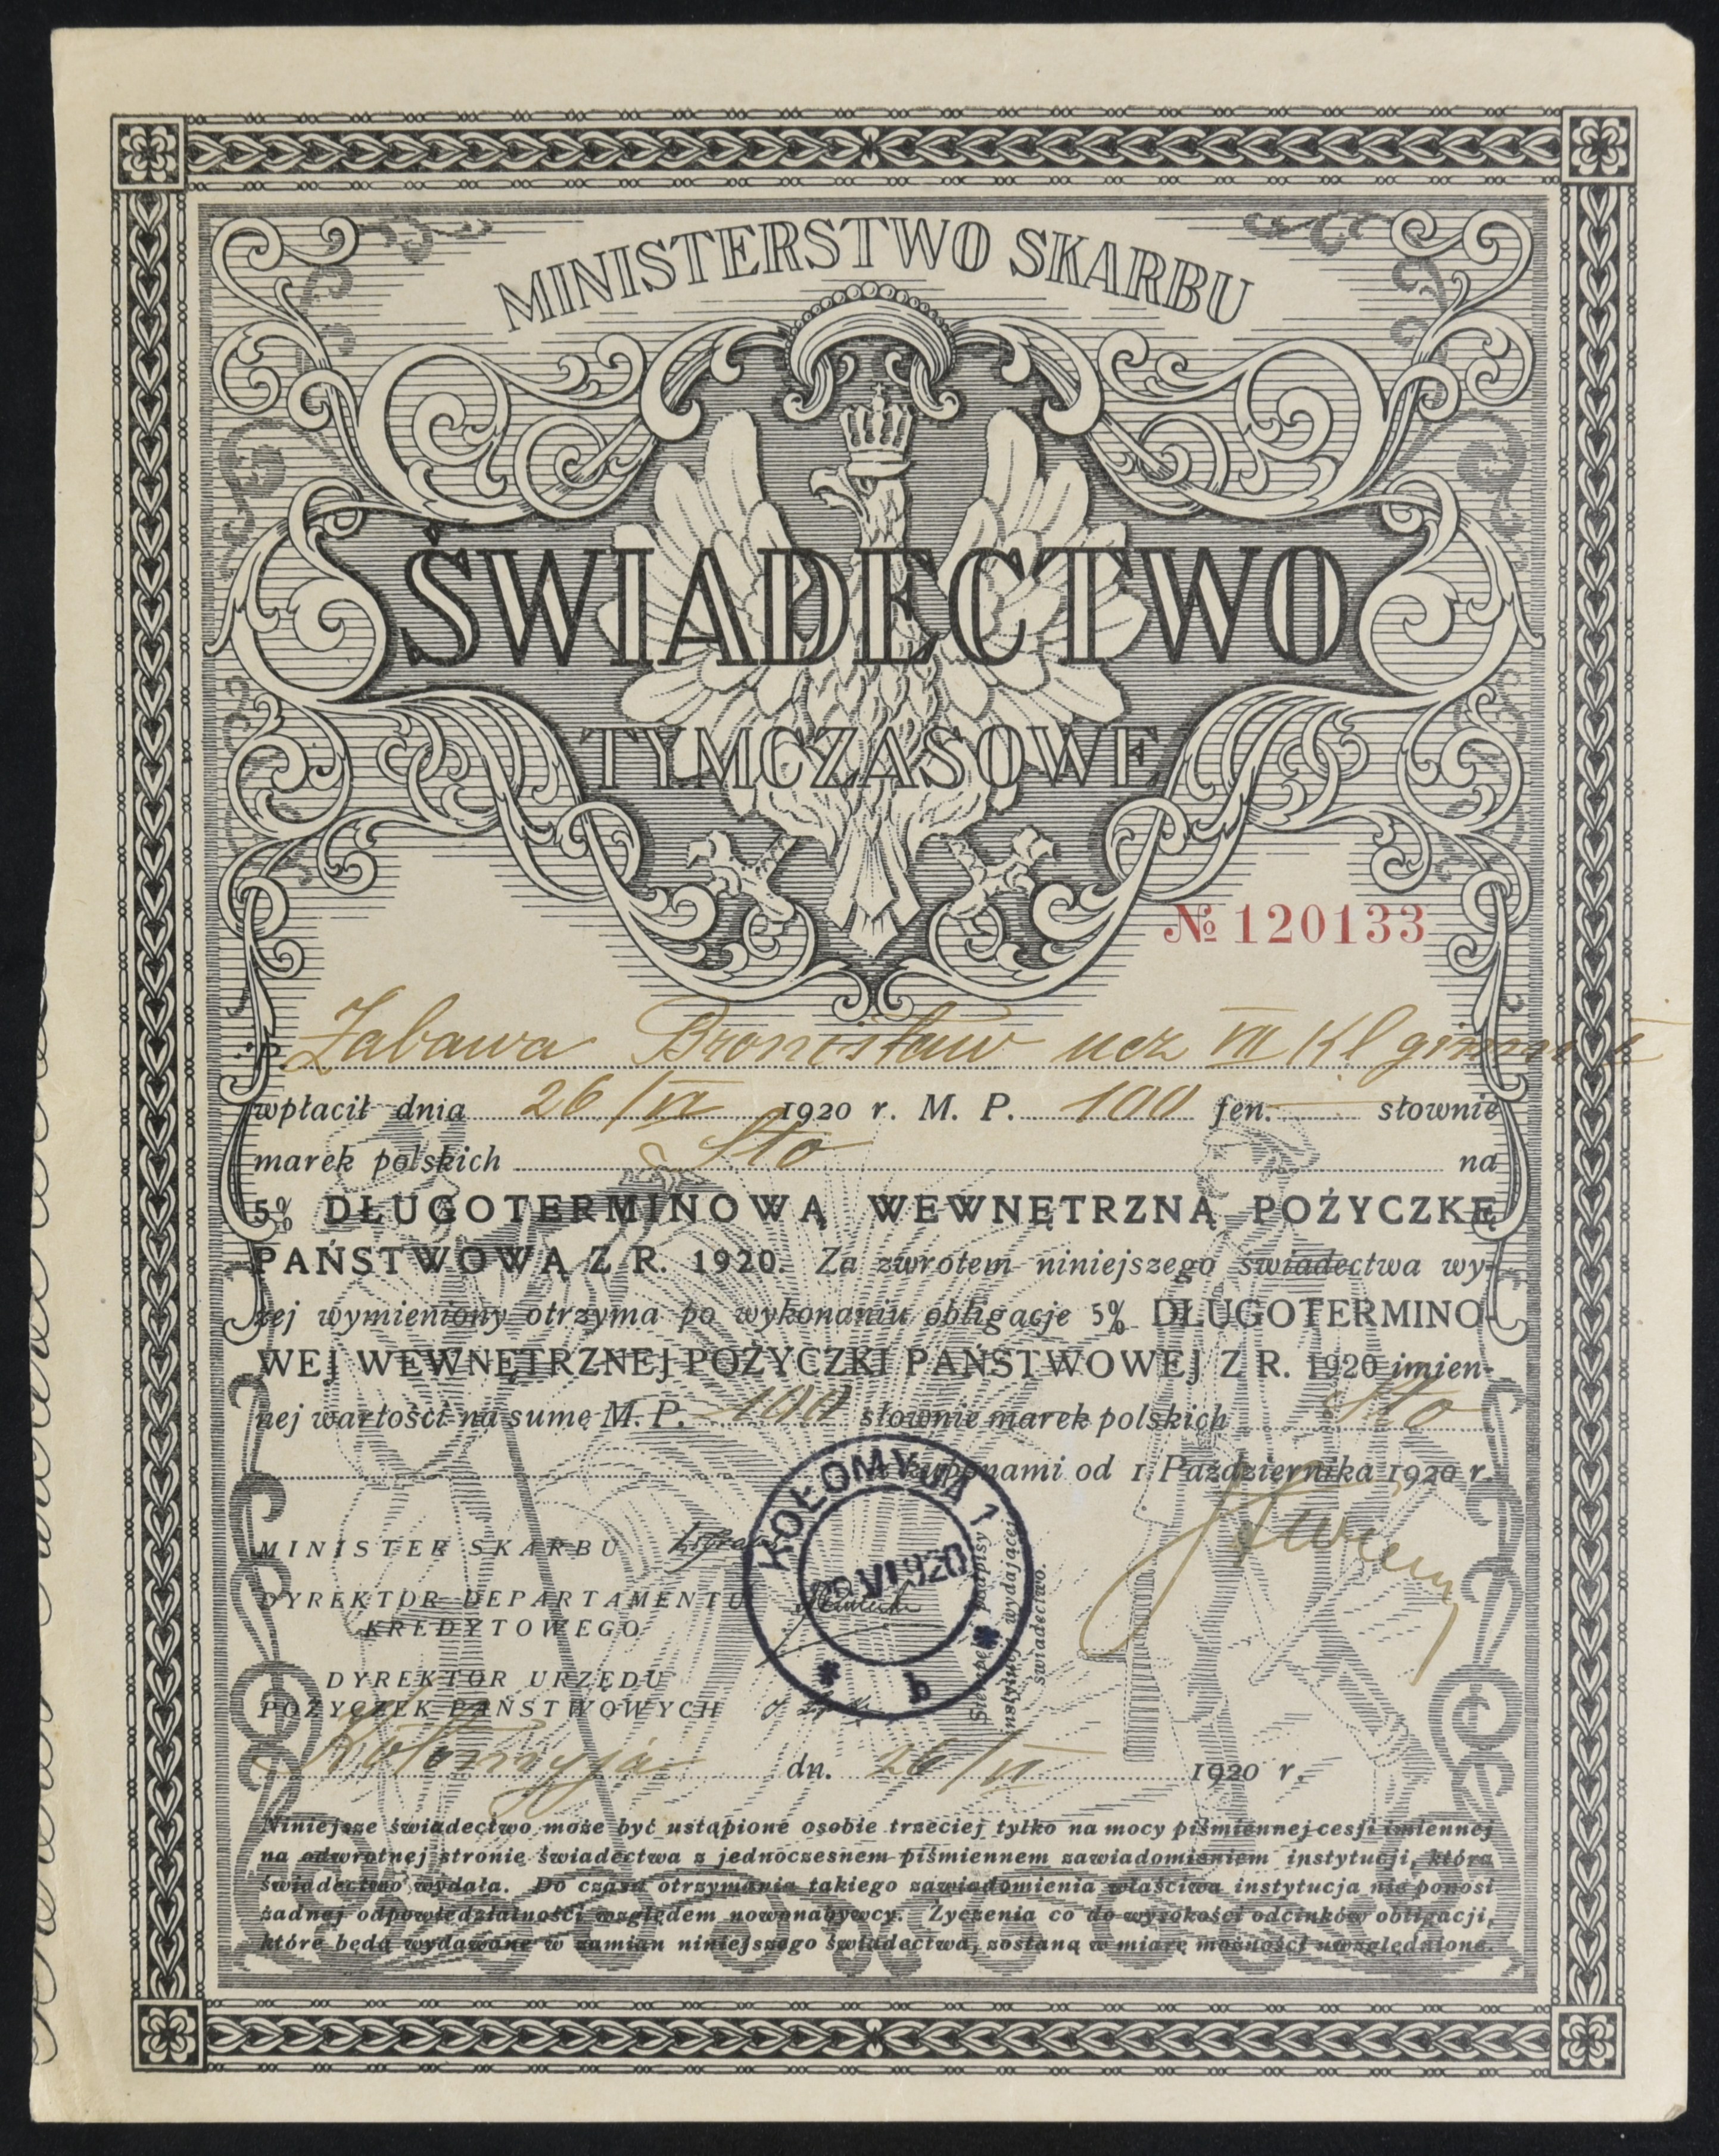 MINISTERSTWO SKARBU
ŚWIADECTWO
TYMCZASOWE
№ 120133
P. Zabawa Bronisław ucz VII Kl gimn
wpłacił dnia 26/VI 1920 r. M. P. 100 fen. — słownie
marek polskich Sto na
5% DŁUGOTERMINOWĄ WEWNĘTRZNĄ POŻYCZKĘ
PAŃSTWOWĄ Z R. 1920. Za zwrotem niniejszego świadectwa wy-
żej wymieniony otrzyma po wykonaniu obligacje 5% DŁUGOTERMINO-
WEJ WEWNĘTRZNEJ POŻYCZKI PAŃSTWOWEJ Z R. 1920 imien-
nej wartości na sumę M. P. 100 słownie marek polskich Sto
z kuponami od 1 Października 1920 r.
MINISTER SKARBU
DYREKTOR DEPARTAMENTU
KREDYTOWEGO
DYREKTOR URZĘDU
POŻYCZEK PAŃSTWOWYCH
KOŁOMYJA 1
VI 920
* b *
podpisy
instytucji wydającej
świadectwo.
Kołomyja dn. 26/VI 1920 r.
Niniejsze świadectwo może być ustąpione osobie trzeciej tylko na mocy piśmiennej cesji imiennej
na odwrotnej stronie świadectwa z jednoczesnem piśmiennem zawiadomieniem instytucji, która
świadectwo wydała. Do czasu otrzymania takiego zawiadomienia właściwa instytucja nie ponosi
żadnej odpowiedzialności względem nowonabywcy. Życzenia co do wysokości odcinków obligacji,
które będą wydawane w zamian niniejszego świadectwa, zostaną w miarę możności uwzględnione.